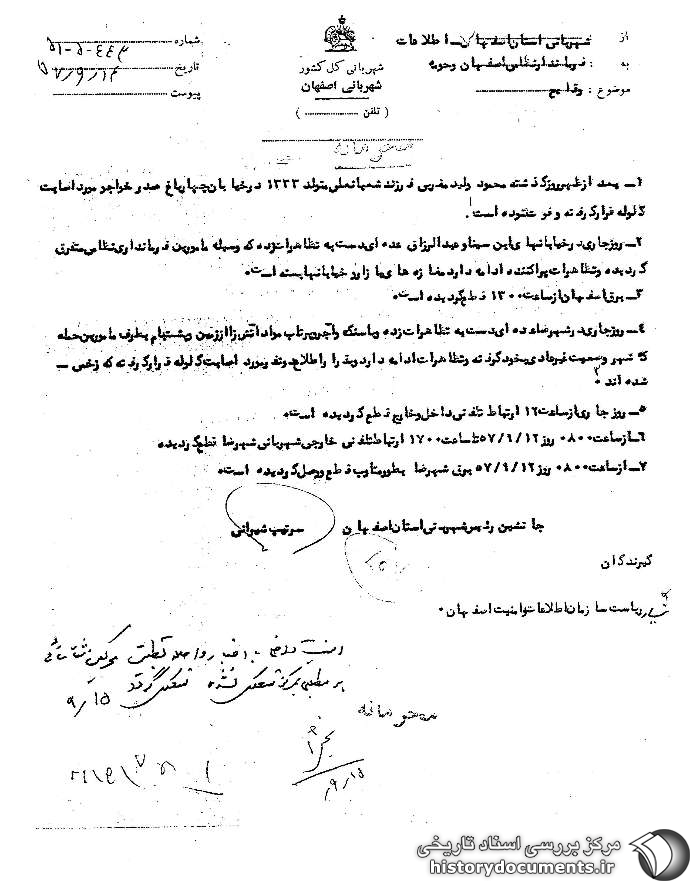 از شهربانی استان اصفهان - اطلاعات
به : فرماندار نظامی اصفهان وحومه
موضوع : وقایع
شهربانی کل کشور
شهربانی اصفهان
( تلفن )
شماره ۵۱-۵-۴۴۳
تاریخ ۵۷/۹/۱۳
پیوست
محرمانه
۱ـ بعد از ظهر روز گذشته محمود ولید مغربی فرزند شعبانعلی متولد ۱۳۳۳ در خیابان چهارباغ صدر خواجو مورد اصابت
گلوله قرار گرفته و فوت نموده است .
۲ـ روز جاری در خیابانهای ابن سینا و عبدالرزاق عده ای دست به تظاهرات زده که وسیله مامورین فرمانداری نظامی متفرق
گردیده و تظاهرات پراکنده ادامه دارد مغازه های بازار و خیابانها بسته است .
۳ـ برق اصفهان از ساعت ۱۳۰۰ قطع گردیده است .
۴ـ روز جاری در شهرضا عده ای دست به تظاهرات زده و با سنگ و آجر و پرتاب مواد آتش زا از زمین و پشت بام بطرف مامورین حمله
که شهر وضعیت غیرعادی بخود گرفته و تظاهرات ادامه دارد و بقرار اطلاع دو نفر مورد اصابت گلوله قرار گرفته که زخمی ـ
شده اند .
۵ـ روز جاری از ساعت ۱۲ ارتباط تلفنی داخل و خارج قطع گردیده است .
۶ـ از ساعت ۰۸۰۰ روز ۵۷/۹/۱۲ تا ساعت ۱۷۰۰ ارتباط تلفنی خارجی شهربانی شهرضا قطع گردیده
۷ـ از ساعت ۰۸۰۰ روز ۵۷/۹/۱۲ برق شهرضا بطور متناوب قطع و وصل گردیده است .
جانشین رئیس شهربانی استان اصفهان سرتیپ شیرانی
گیرندگان
ریاست سازمان اطلاعات وامنیت اصفهان .
بر مطلبی بمرکز منعکس نشده منعکس گردد ۹/۱۵
محرمانه
۹/۱۵
مرکز بررسی اسناد تاریخی
historydocuments.ir